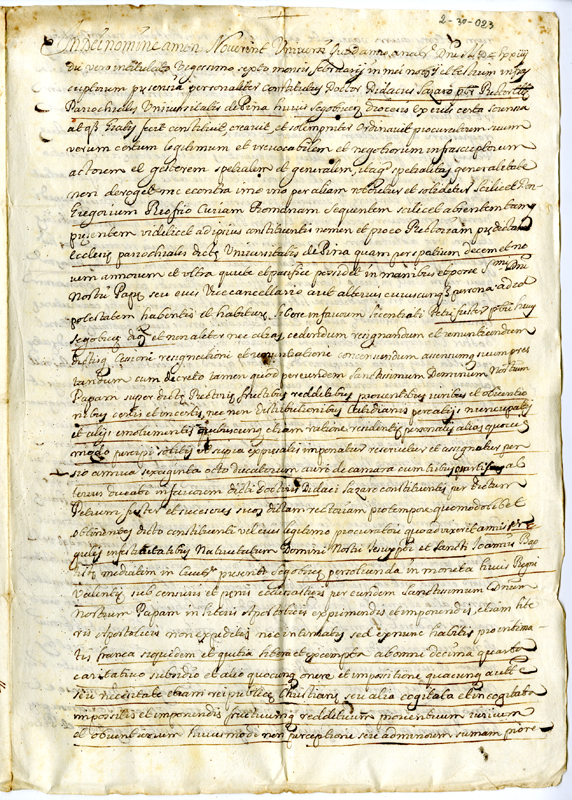 2-30-023
In Dei nomine amen Noverint Universi quod anno a nat.
die vero intitulato Vigessimo septo mensis februarii in mei not. et testium infra
scriptorum presentia personaliter constitutus Doctor Didacus Lazaro Rector
Parrochialis Universitatis de Pina huius segobricen diocesis ex eius certa scientia
gratis fecit constituit creavit et solemniter ordinavit procuratorem suum
verum certum legitimum et irrevocabilem et negotiorum infrascriptorum
actorem et gestorem spetialem et generalem itaq spetialitas generalitate
non deroget nec econtra imo ino per aliam roboretur et solidetur scilicet Don
Gregorium Curiam Romanam sequentem scilicet absentem tanq
presentem videlicet ad ipsius constituentis nomen et pro eo Rectoriam predictam
ecclesie parrochialis dicte Universitatis de Pina quam per spatium decem et no
vem annorum et ultra quiete et pacifice possidet in manibus et posse Dni
Nostri Pape seu eius Vice cancellario aut alterius cuiuscunq persona ad id
potestatem habentis et habiture in favorem Licentiati Petri fuster
segobricen dioc et non aliter nec alias, cedendum resignandum et renuntiandum
cessioni resignationi et renuntiatione consensum
tandum cum decreto tamen quod per eundem sanctissimum Dominum Nostrum
Papam super dicte Rectorie fructibus redditibus proventibus iuribus et obventio
nibus certis et incertis, nec non distributionibus quotidianis nuncupatis
et aliis emolumentis quibuscunq etiam ratione residentie personalis alias quocu
modo percipi solitis et supra expressatis imponatur reservetur et assignetur pen
sio annua sexaginta octo ducatorum auri de camara cum tribus al
terius ducati in favorem dicti Doctoris Didaci Lazaro constituentis per dictum
Petrum fuster et sucesores suos dictam rectoriam pro tempore quomodolibet
obtinentes dicto constituenti vel eius legitimo procuratori quoad vixerit annis
gulis in festivitatibus Nativitatum Domini Nostri Jesuchristi et sancti Joannis Bap
tiste mediatim in civit. presenti segobricen persolvenda in moneta huius Regni
Valentie sub censuris et penis ecclesiasticis per eundem Sanctissimum Dnum
nostrum Papam in literis Apostolicis exprimendis et imponendis, etiam lite
ris Apostolicis non expeditis nec intimatis sed ex nunc habitis pro intima
tis franca siquidem et quitia libera et exempta ab omni decima quarta
caritativo subsidio et alio quocunq onere et impositione quacunq aucte
seu necesitate etiam rei publice Christiane seu alia cogitata el incogitata
impositis et imponendis fructuumq reddituum proventuum iurium
et obventionum huiusmodi non perceptione seu ad minorem sumam